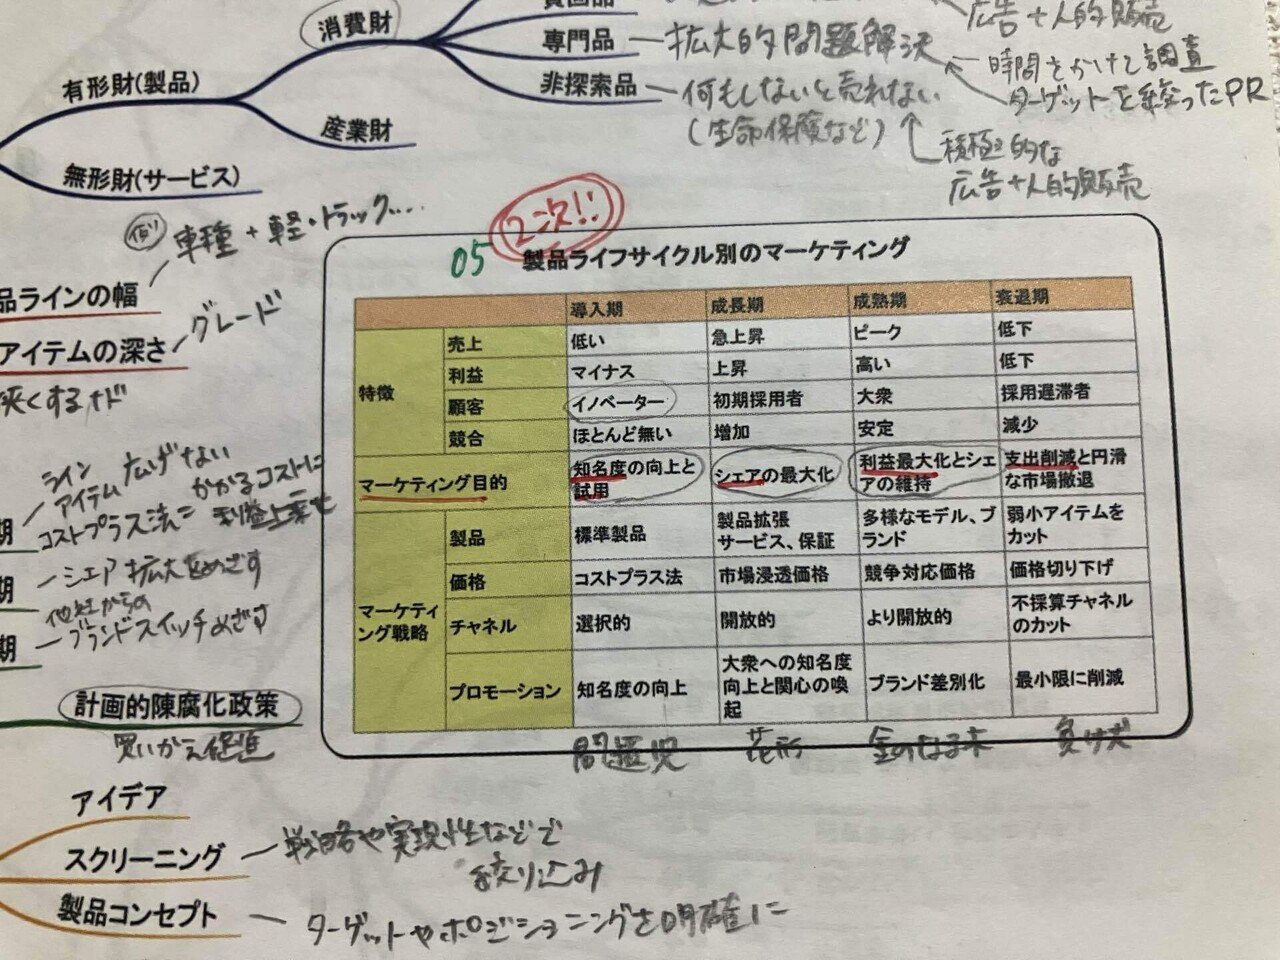 消費財
専門品
拡大的問題解決
非探索品
何もしないと売れない
(生命保険など)
広告+人的販売
時間をかけて調査
ターゲットを絞ったPR
積極的な
広告+人的販売
有形財(製品)
産業財
無形財(サービス)
例) 車種+軽・トラック....
品ラインの幅
アイテムの深さ
グレード
ライン
アイテム 広げない
コストプラス法=かかるコストに
利益上乗せ
期
シェア拡大をめざす
期
他社からの
ブランドスイッチめざす
期
計画的陳腐化政策
買いかえ促進
05
2次!!
製品ライフサイクル別のマーケティング
導入期 成長期 成熟期 衰退期
特徴
売上 低い 急上昇 ピーク 低下
利益 マイナス 上昇 高い 低下
顧客 イノベーター 初期採用者 大衆 採用遅滞者
競合 ほとんど無い 増加 安定 減少
マーケティング目的
知名度の向上と
試用
シェアの最大化
利益最大化とシェ
アの維持
支出削減と円滑
な市場撤退
マーケティ
ング戦略
製品
標準製品
製品拡張
サービス、保証
多様なモデル、ブ
ランド
弱小アイテムを
カット
価格 コストプラス法 市場浸透価格 競争対応価格 価格切り下げ
チャネル
選択的
開放的
より開放的
不採算チャネル
のカット
プロモーション
知名度の向上
大衆への知名度
向上と関心の喚
起
ブランド差別化
最小限に削減
問題児 花形 金のなる木 負け犬
アイデア
スクリーニング
戦略や実現性などで
絞り込み
製品コンセプト
ターゲットやポジショニングを明確に